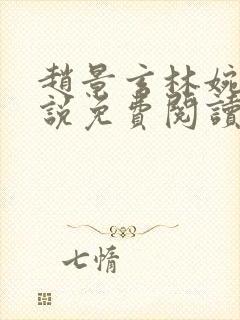 趙景言林婉
說免費閱讀
七惰